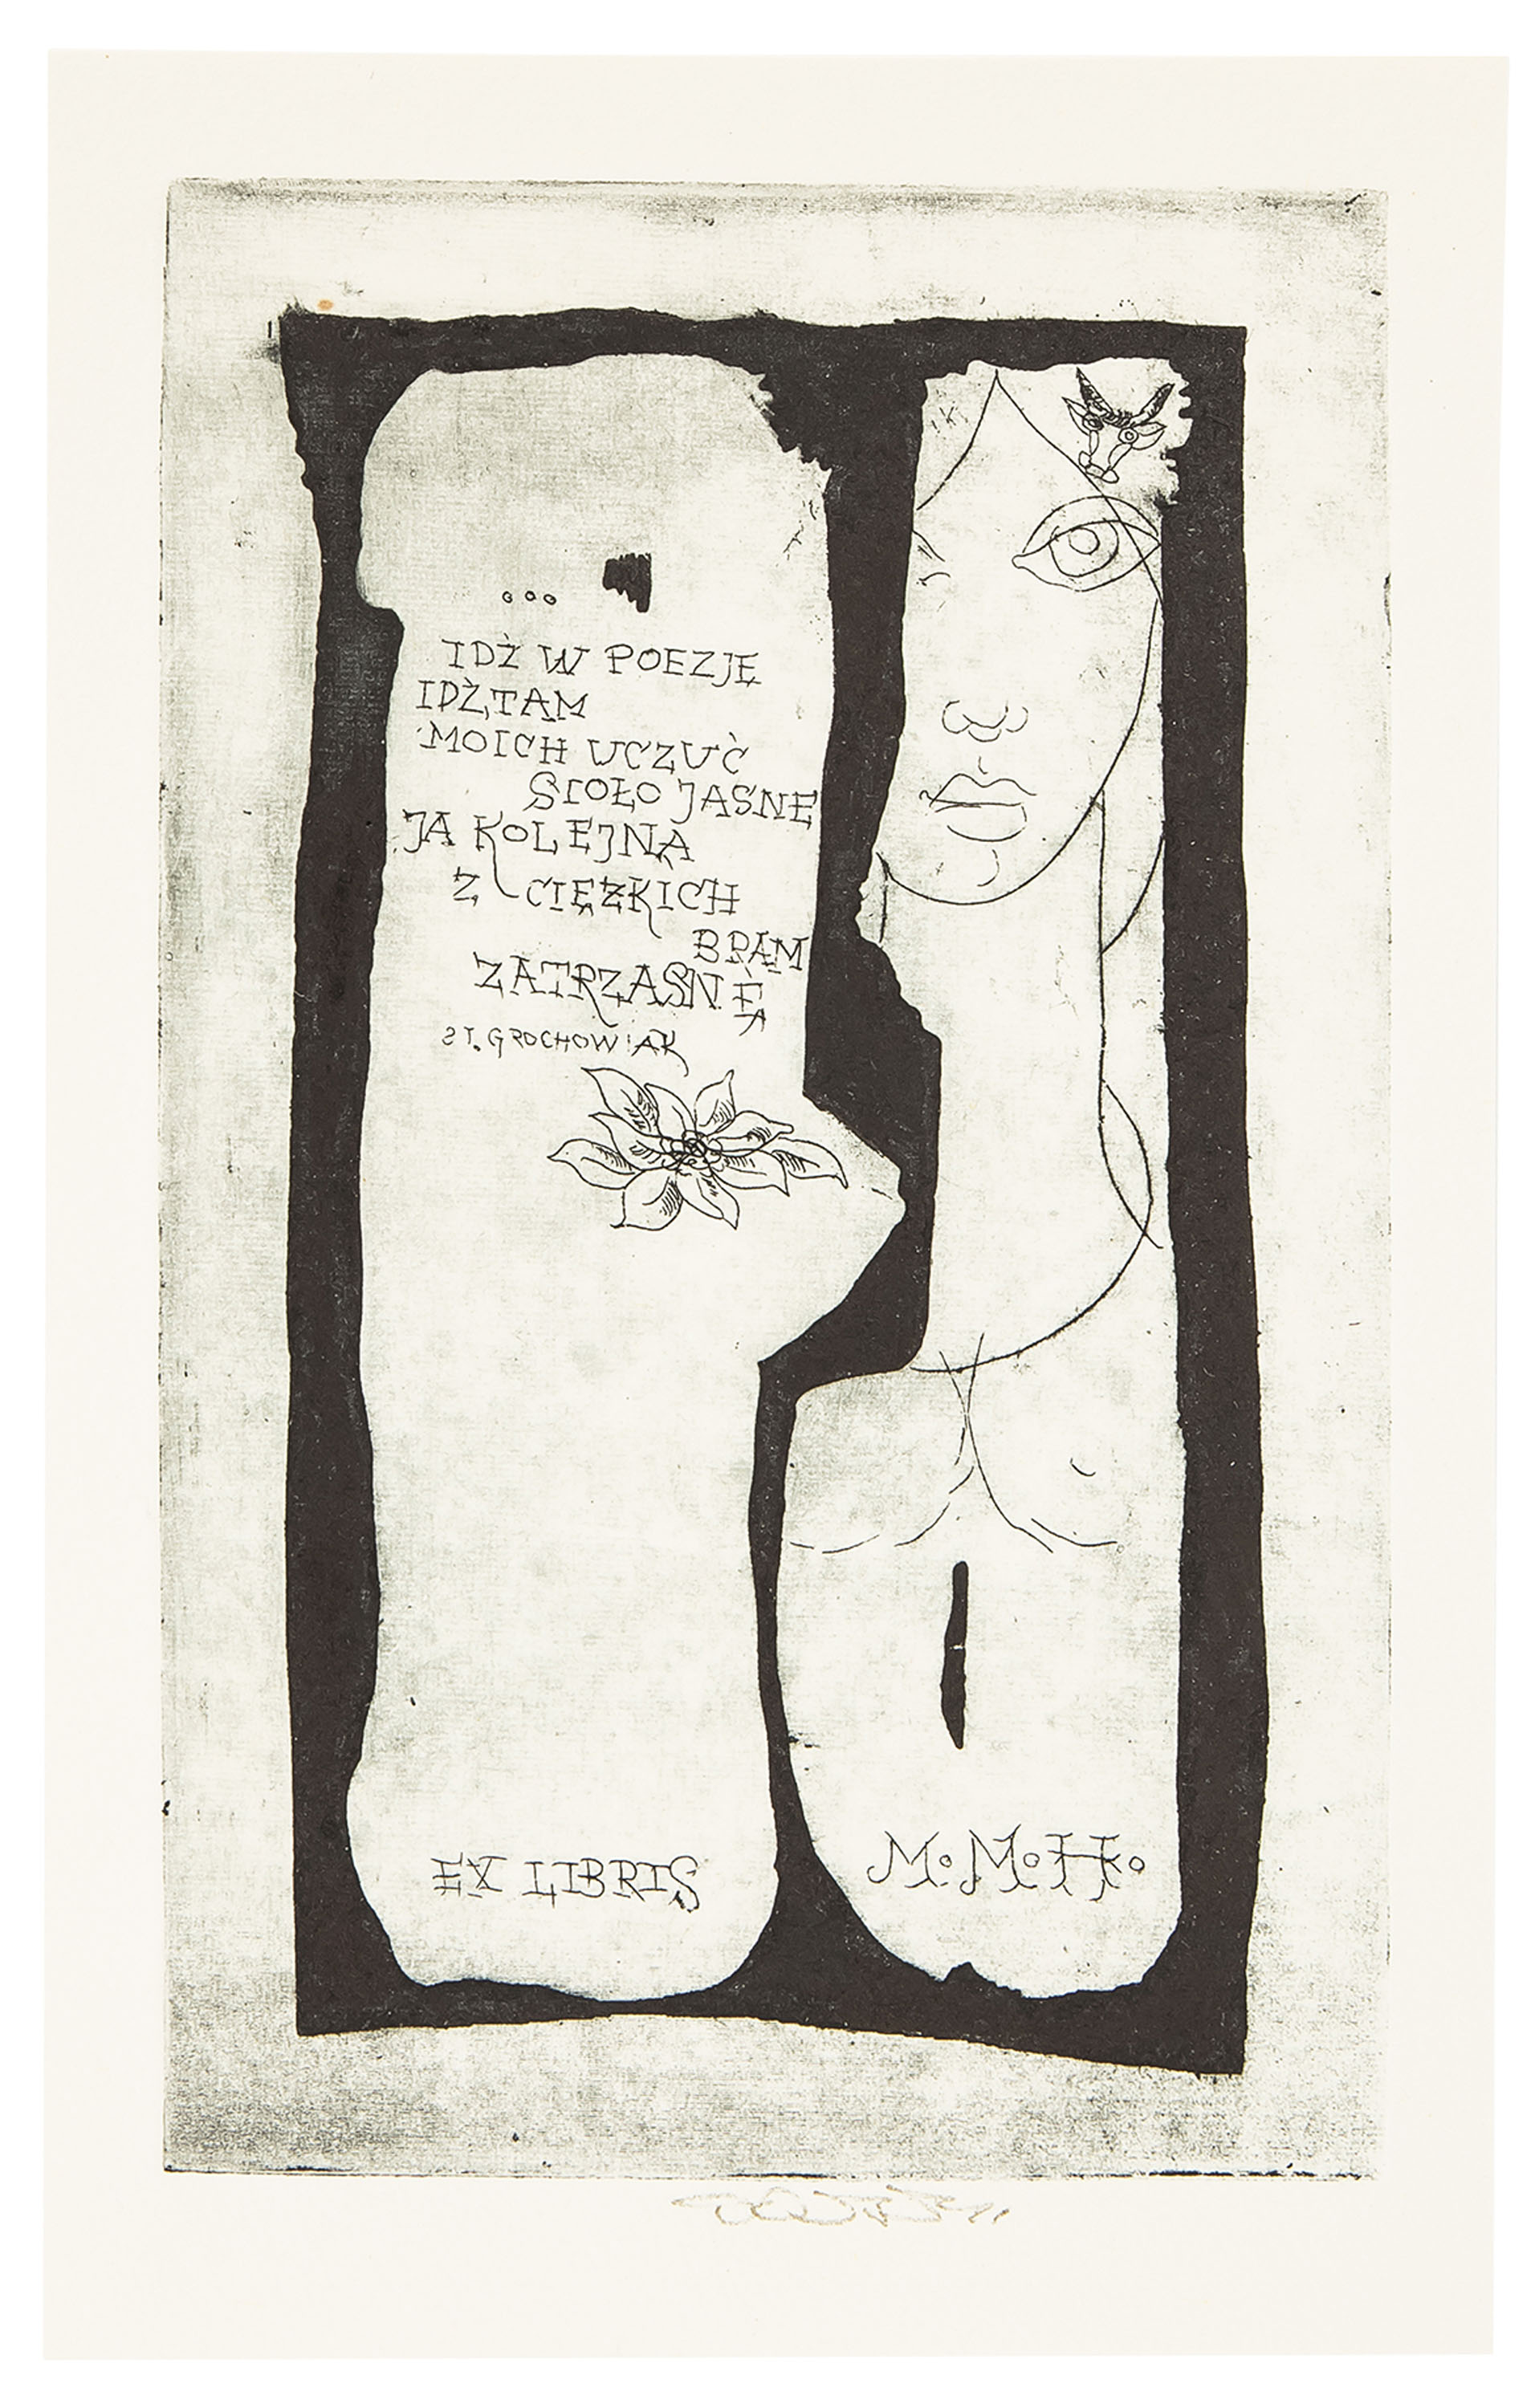 IDŻ W POEZJĘ
IDŻ, TAM
MOICH UCZUĆ
SIOŁO JASNE
JA KOLEJNĄ
Z CIĘŻKICH
BRAM
ZATRZASNĘ
ST. GROCHOWIAK
EX LIBRIS
M. M. H.